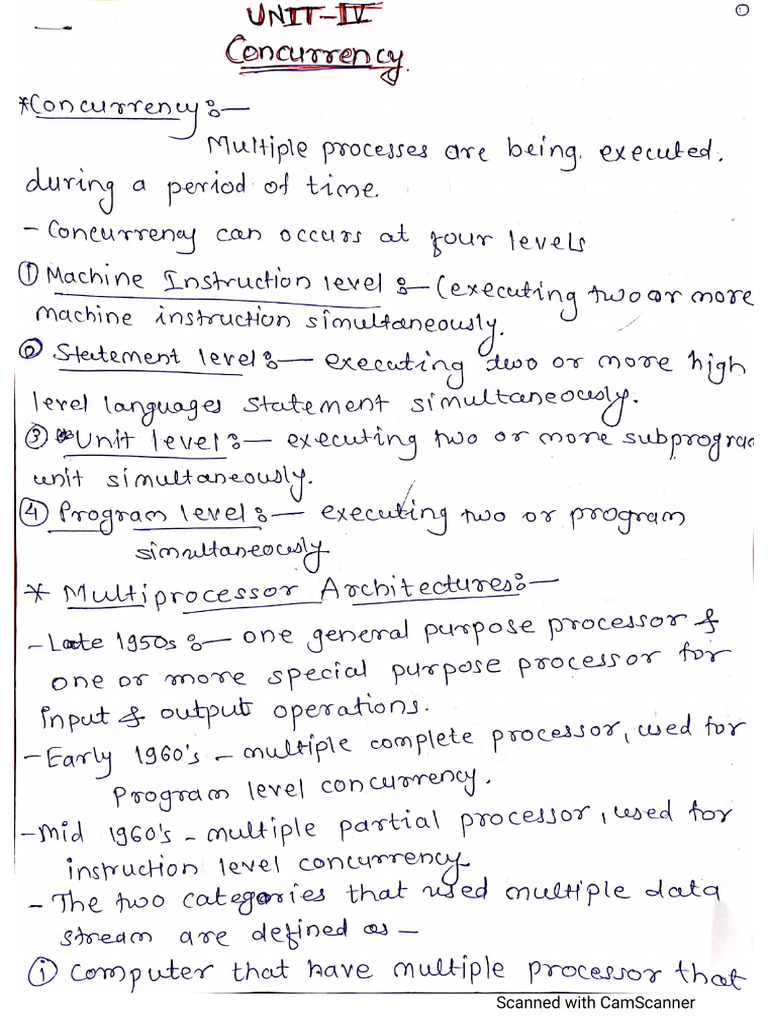 ①
UNIT-IV
Concurrency.
*Concurrency:—
Multiple processes are being. executed.
during a period of time.
- Concurrency can occurs at four levels
① Machine Instruction level :— (executing two or more
machine instruction simultaneously.
② Statement level:— executing two or more high
level languages statement simultaneously.
③ Unit level:— executing two or more subprogra
unit simultaneously.
④ Program level:— executing two or program
simultaneously
* Multiprocessor Architectures:—
- Late 1950s :— one general purpose processor &
one or more special purpose processor for
input & output operations.
- Early 1960's - multiple complete processor, used for
Program level concurrency.
- Mid 1960's - multiple partial processor, used for
instruction level concurrency
- The two categories that used multiple data
stream are defined as —
① Computer that have multiple processor that
Scanned with CamScanner